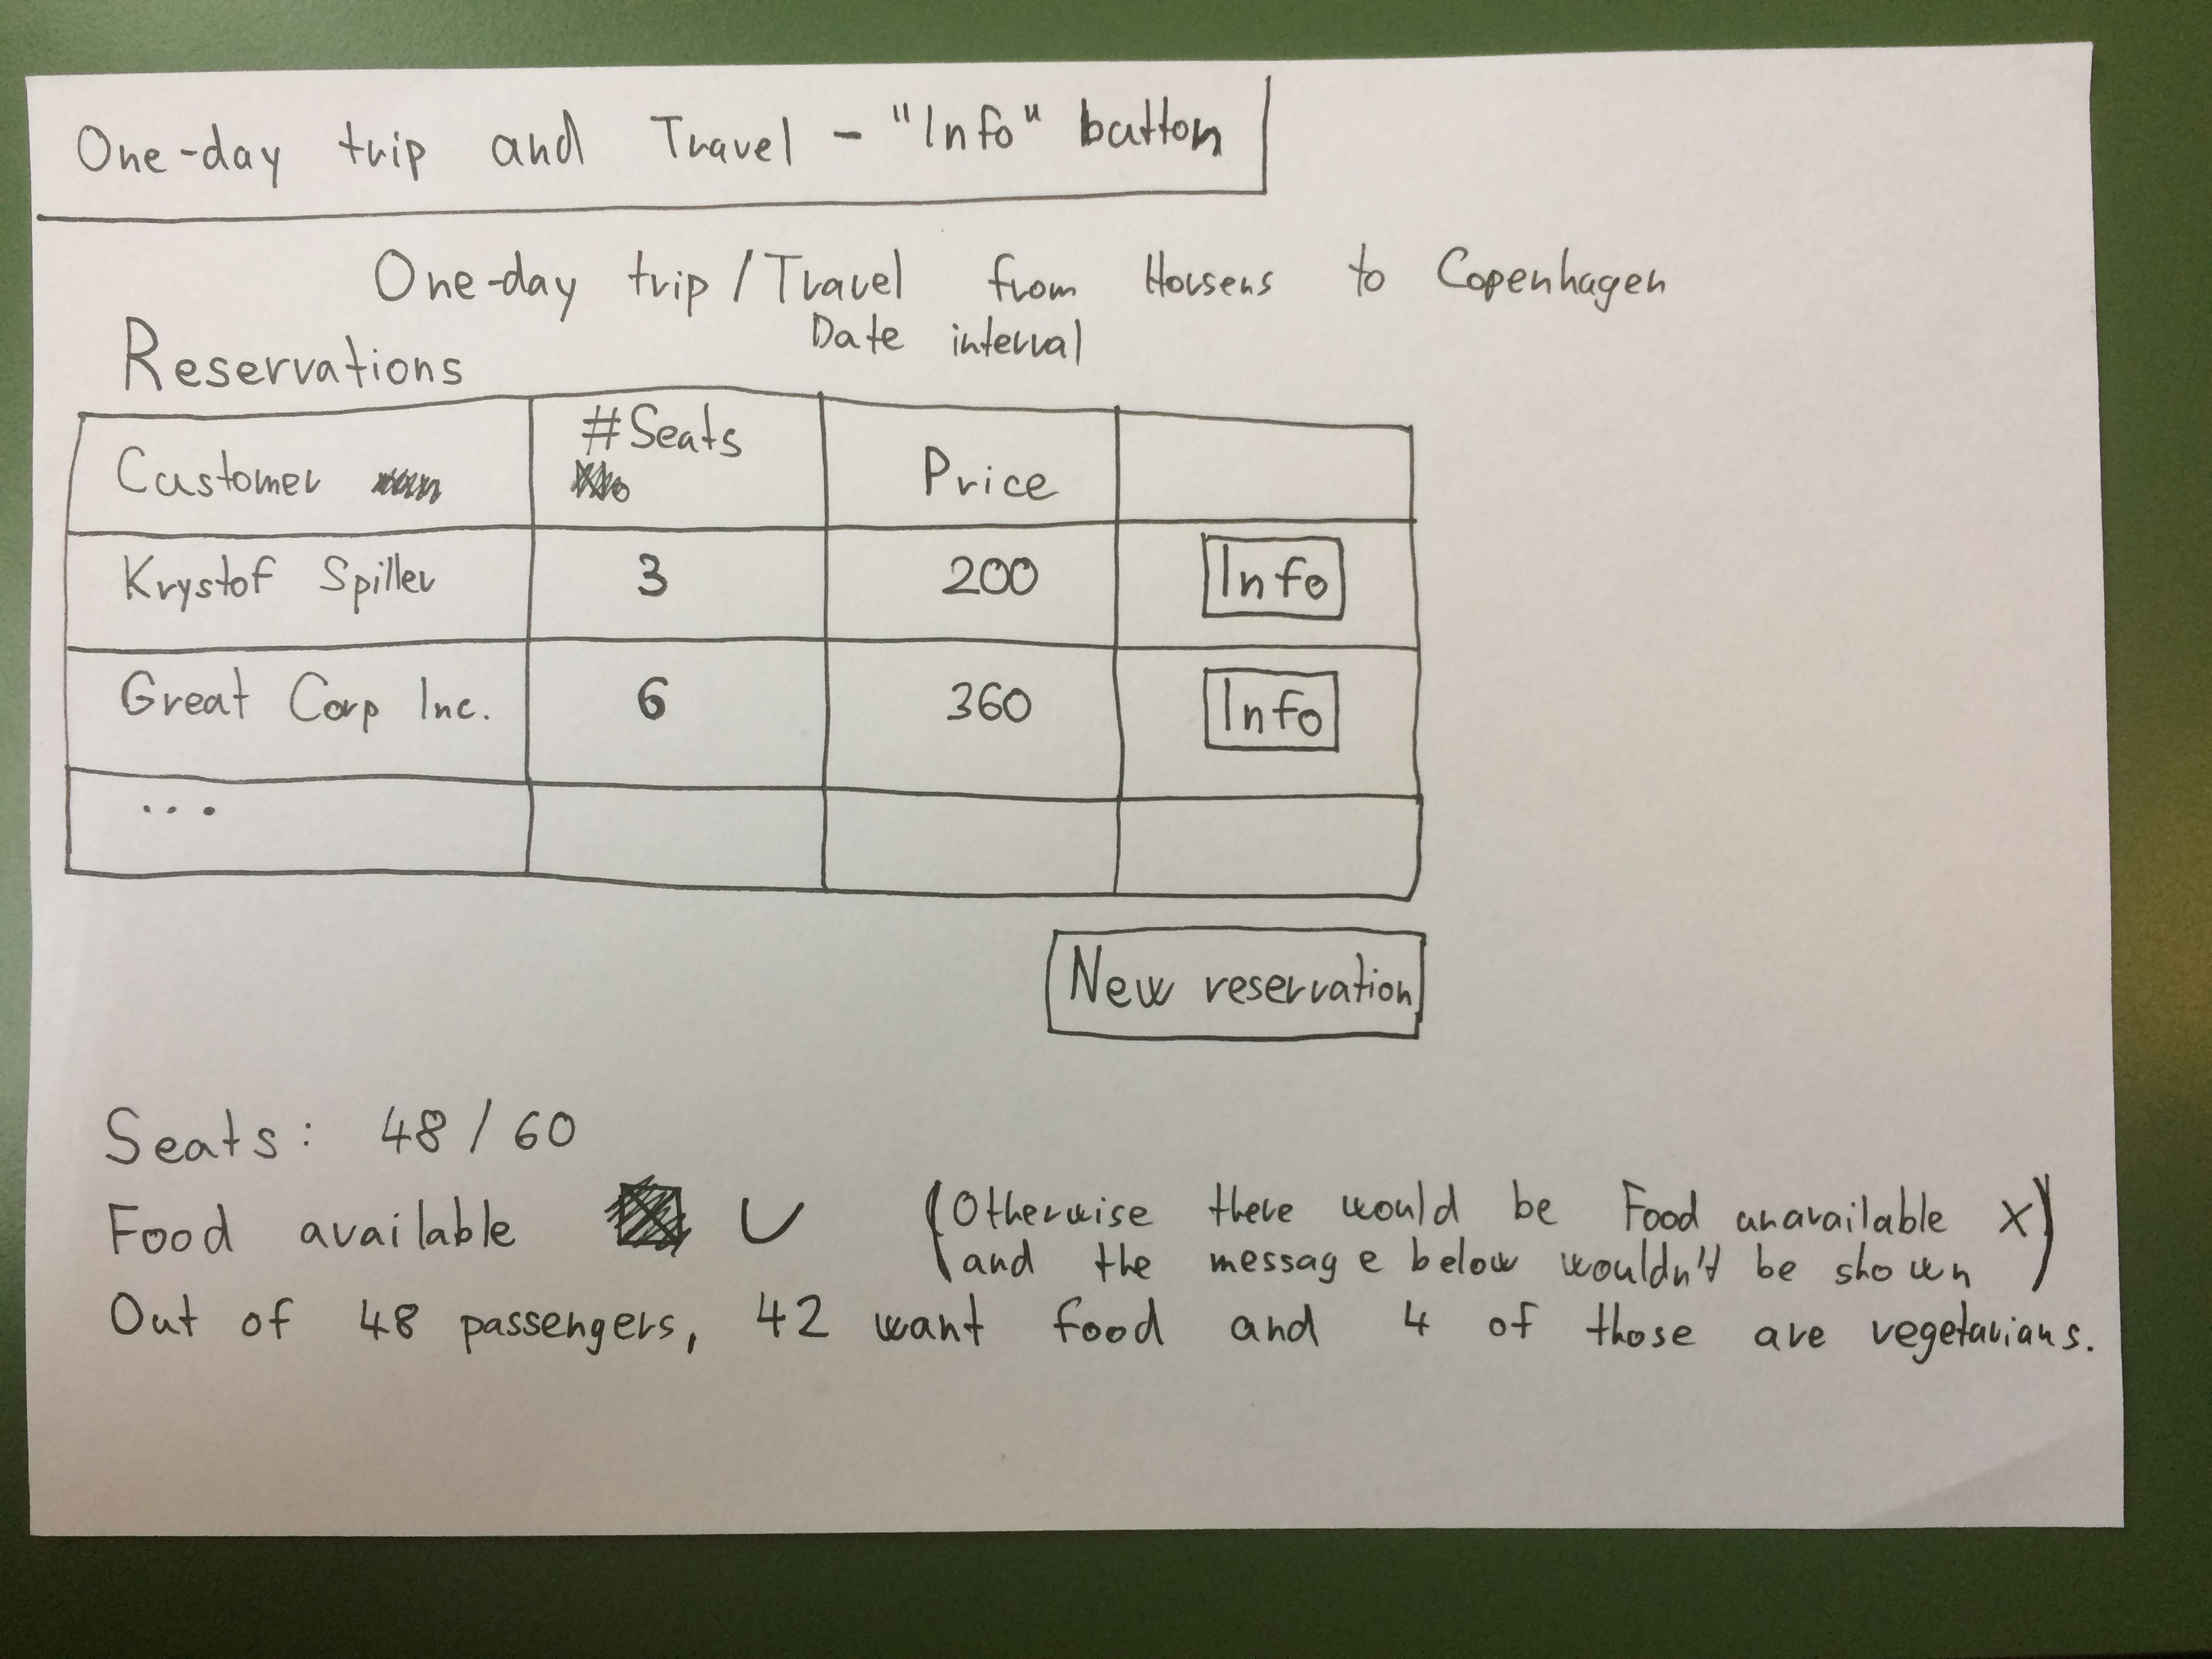 One-day trip and Travel - "Info" button
One-day trip / Travel from Horsens to Copenhagen
Date interval
Reservations
Customer #Seats Price
Krystof Spiller 3 200 Info
Great Corp Inc. 6 360 Info
...
New reservation
Seats: 48 / 60
Food available (Otherwise there would be Food unavailable X
and the message below wouldn't be shown)
Out of 48 passengers, 42 want food and 4 of those are vegetarians.